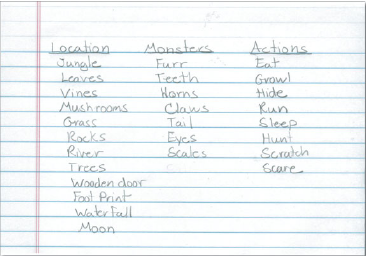 Location Monsters Actions
Jungle Furr Eat
Leaves Teeth Growl
Vines Horns Hide
Mushrooms Claws Run
Grass Tail Sleep
Rocks Eyes Hunt
River Scales Scratch
Trees Scare
Wooden door
Foot Print
Waterfall
Moon